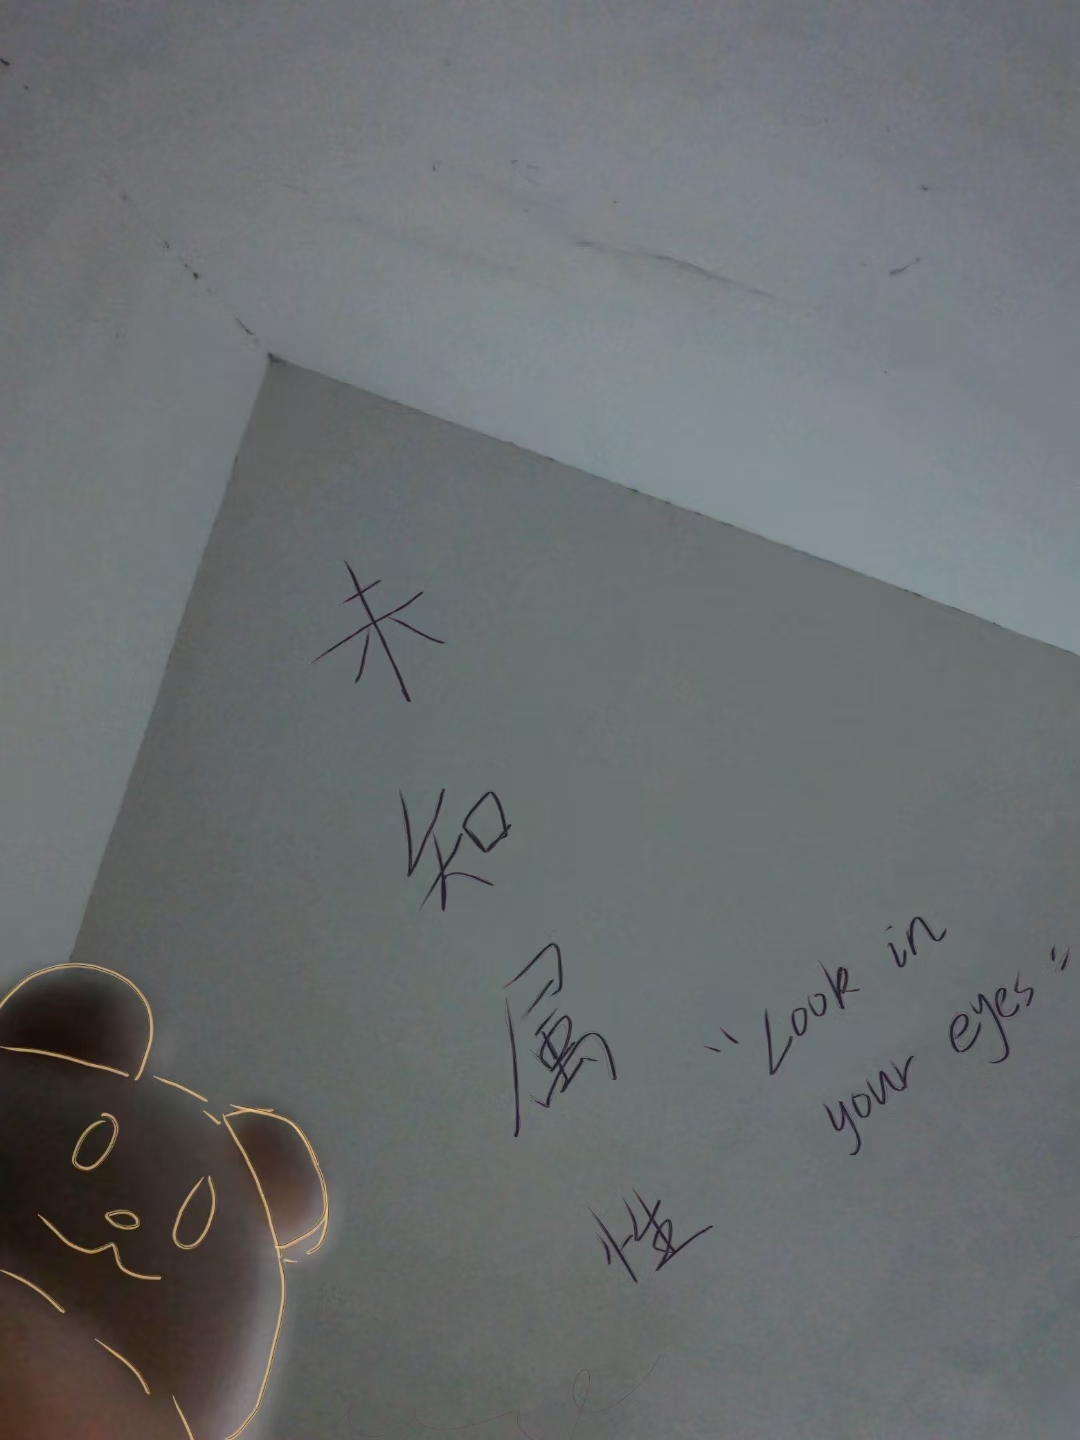 未知属性
"Look in
your eyes"